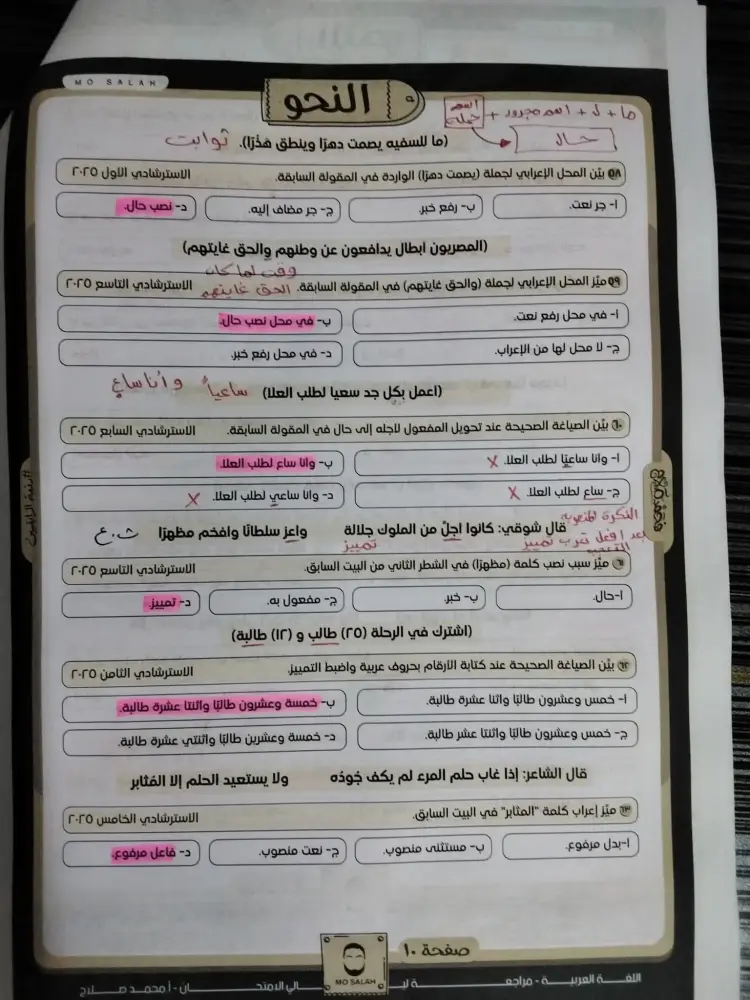 MO SALAH
النحو
ما + لـ + اسم مجرور + اسم جملة
حال
(ما للسفيه يصمت دهرًا وينطق هَذْرًا). ثوابت
٥٨ بيّن المحل الإعرابي لجملة (يصمت دهرًا) الواردة في المقولة السابقة. الاسترشادي الاول ٢٠٢٥
أ- جر نعت. ب- رفع خبر. ج- جر مضاف إليه. د- نصب حال.
(المصريون ابطال يدافعون عن وطنهم والحق غايتهم)
وقت لما كان
الحق غايتهم
٥٩ ميّز المحل الإعرابي لجملة (والحق غايتهم) في المقولة السابقة. الاسترشادي التاسع ٢٠٢٥
أ- في محل رفع نعت. ب- في محل نصب حال.
ج- لا محل لها من الإعراب. د- في محل رفع خبر.
(اعمل بكل جد سعيا لطلب العلا) ساعياً وأنا ساعٍ
٦٠ بيّن الصياغة الصحيحة عند تحويل المفعول لاجله إلى حال في المقولة السابقة. الاسترشادي السابع ٢٠٢٥
أ- وانا ساعيًا لطلب العلا. ب- وانا ساع لطلب العلا.
ج- ساع لطلب العلا. د- وانا ساعي لطلب العلا.
النكرة المنصوبة
بعد افعل تعرب تمييز
قال شوقي: كانوا اجلّ من الملوك جلالة واعز سلطانًا وافخم مظهرًا ث.ع
تمييز
٦١ ميّز سبب نصب كلمة (مظهرًا) في الشطر الثاني من البيت السابق. الاسترشادي التاسع ٢٠٢٥
أ-حال. ب- خبر. ج- مفعول به. د- تمييز.
(اشترك في الرحلة (٢٥) طالب و (١٢) طالبة)
٦٢ بيّن الصياغة الصحيحة عند كتابة الأرقام بحروف عربية واضبط التمييز. الاسترشادي الثامن ٢٠٢٥
أ- خمس وعشرون طالبًا واثنا عشرة طالبة. ب- خمسة وعشرون طالبًا واثنتا عشرة طالبة.
ج- خمس وعشرون طالبًا واثنتا عشر طالبة. د- خمسة وعشرين طالبًا واثنتي عشرة طالبة.
قال الشاعر: إذا غاب حلم المرء لم يكف جُودُه ولا يستعيد الحلم إلا المُثابر
٦٣ ميّز إعراب كلمة "المثابر" في البيت السابق. الاسترشادي الخامس ٢٠٢٥
أ-بدل مرفوع. ب- مستثنى منصوب. ج- نعت منصوب. د- فاعل مرفوع.
صفحة ١٠
MO SALAH
اللغة العربيـــة - مراجعــة ليــالي الامتحــان - أ محمـد صـلاح